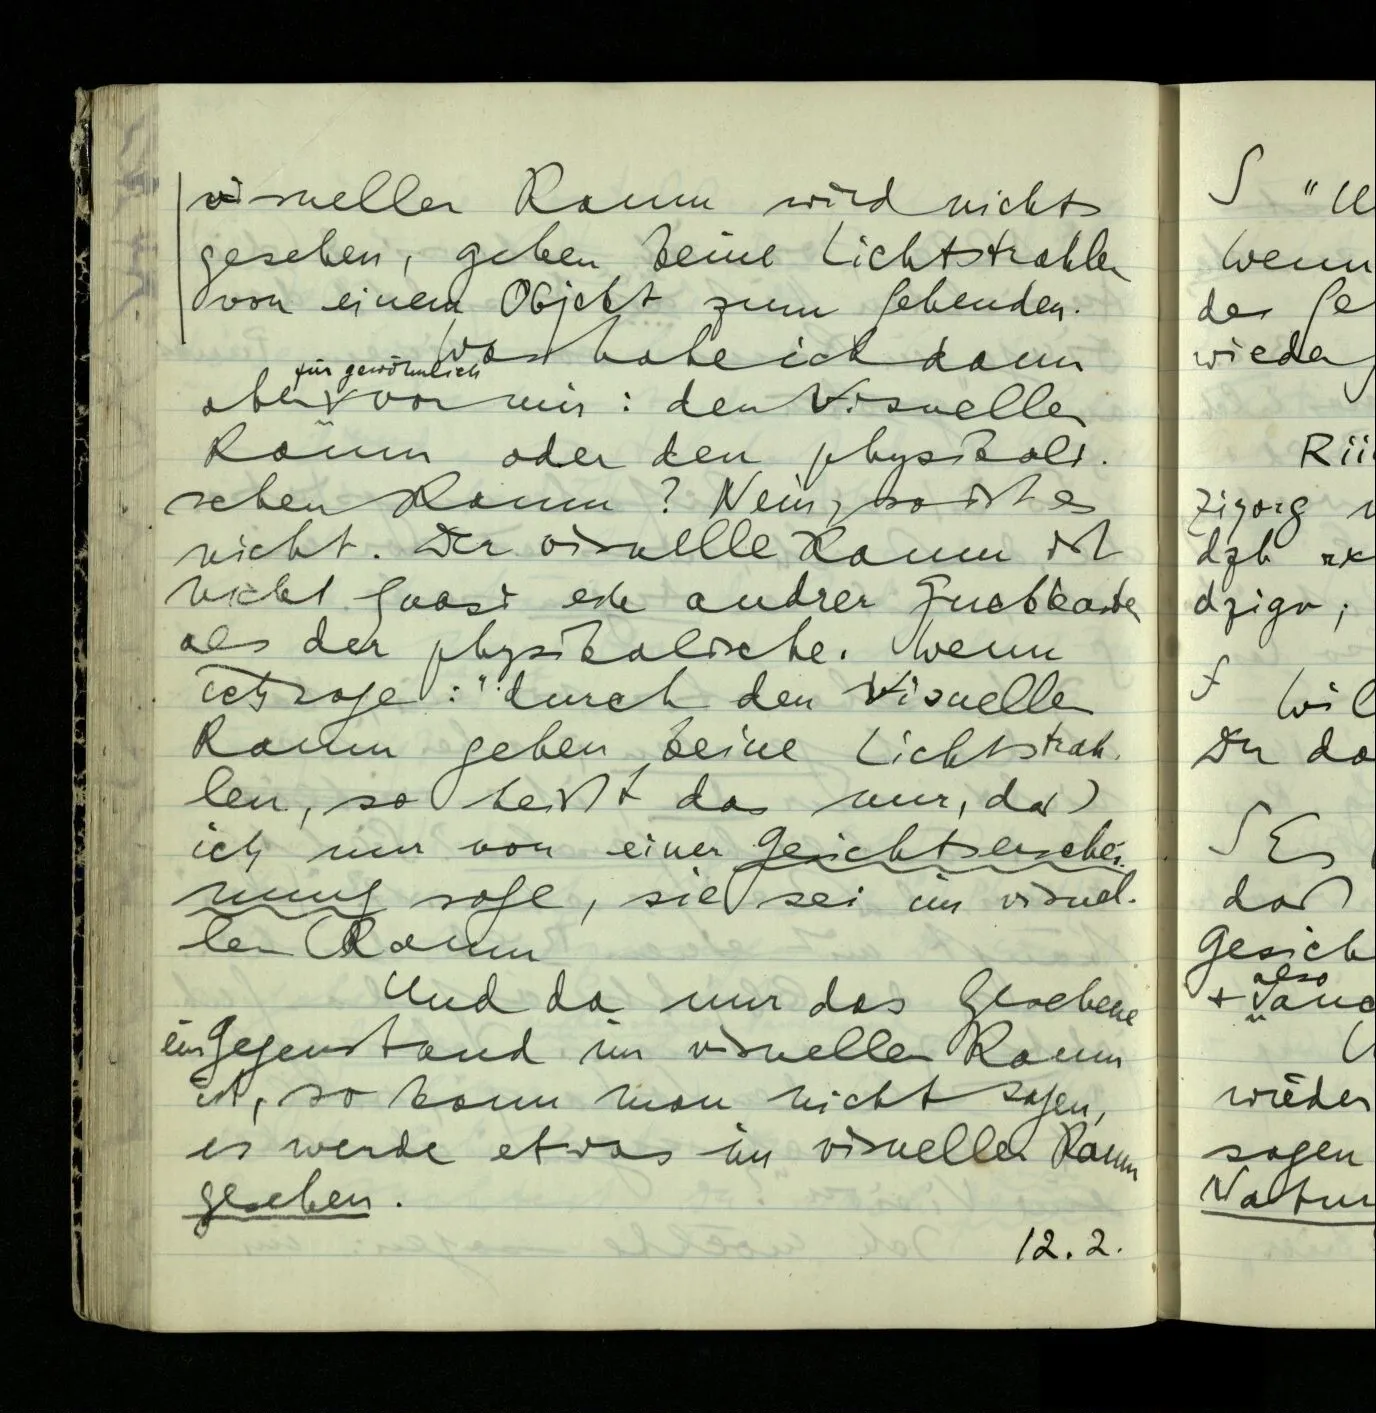 visuellen Raum wird nichts
gesehen, gehen keine Lichtstrahlen
von einem Objekt zum Sehenden.
Was habe ich dann
für gewöhnlich
aber vor mir: den visuellen
Raum oder den physikali-
schen Raum? Nein, so ist es
nicht. Der visuelle Raum ist
nicht quasi ein andrer
als der physikalische. Wenn
ich sage: "durch den visuellen
Raum gehen keine Lichtstrah-
len, so heißt das nur, daß
ich nur von einer Gesichtserschei-
nung sage, sie sei im visuel-
len Raum
Und da nur das Gesehene
ein Gegenstand im visuellen Raum
ist, so kann man nicht sagen,
es werde etwas im visuellen Raum
gesehen.
12.2.
S "
Wenn
des
wieder
zigorg
dzh
dzigv;
Du
S Es
daß
Gesich
also
wieder
sagen
Natur